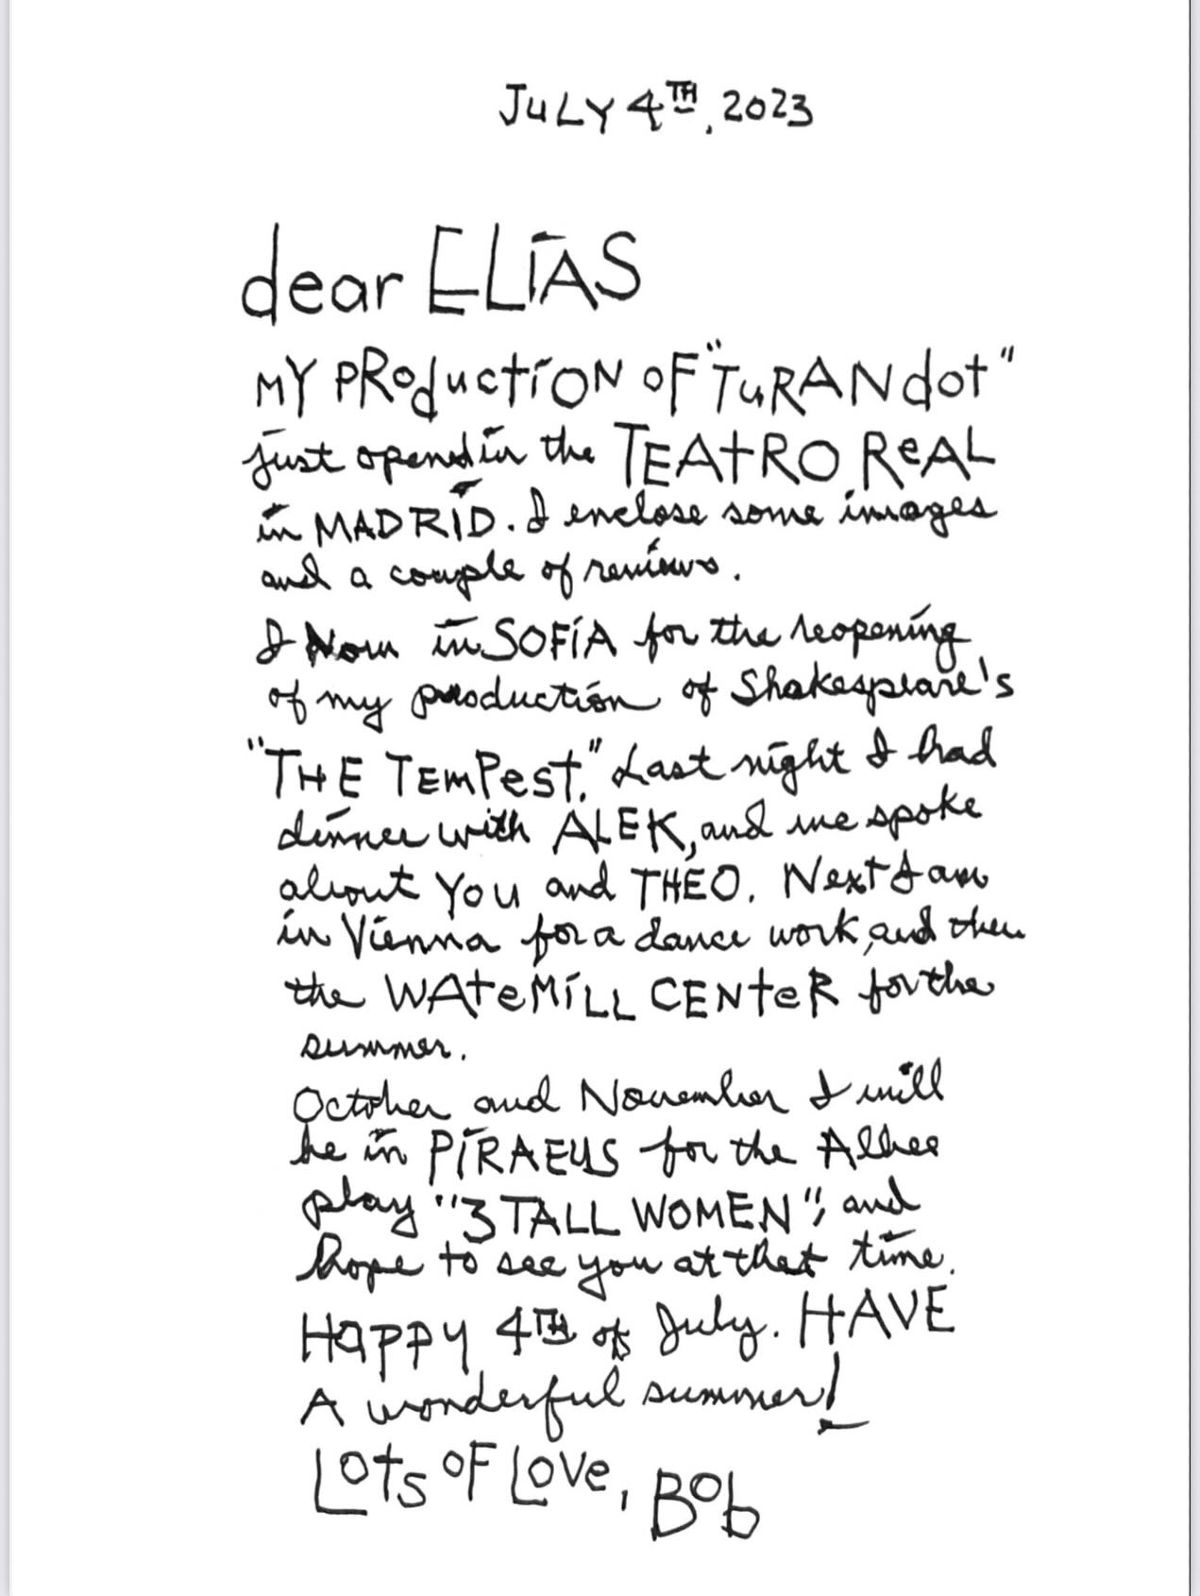 JULY 4TH, 2023
dear ELIAS
MY PRoductiON OF "TuRANdot"
just opened in the TEAtRO ReAL
in MADRID. I enclose some images
and a couple of reviews.
I Now in SOFIA for the reopening
of my production of Shakespeare's
"THE TEMPest." Last night I had
dinner with ALEK, and we spoke
about YOU and THEO. Next I am
in Vienna for a dance work, and then
the WAteMiLL CENteR for the
summer.
October and November I will
be in PIRAEUS for the Albee
play "3 TALL WOMEN", and
hope to see you at that time.
HAPPY 4TH of July. HAVE
A wonderful summer!
Lots OF Love, Bob